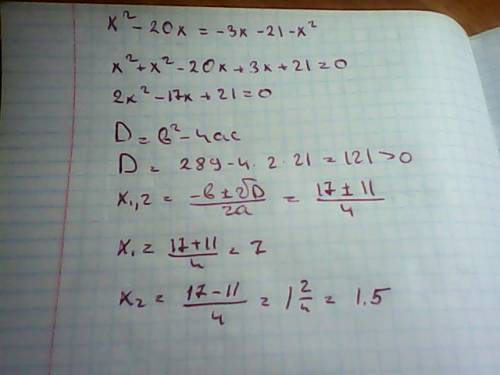 x² - 20x = -3x - 21 - x²
x² + x² - 20x + 3x + 21 = 0
2x² - 17x + 21 = 0
D = b² - 4ac
D = 289 - 4 · 2 · 21 = 121 > 0
x₁,₂ = (-b ± √D)/2a = (17 ± 11)/4
x₁ = (17 + 11)/4 = 7
x₂ = (17 - 11)/4 = 1 2/4 = 1.5